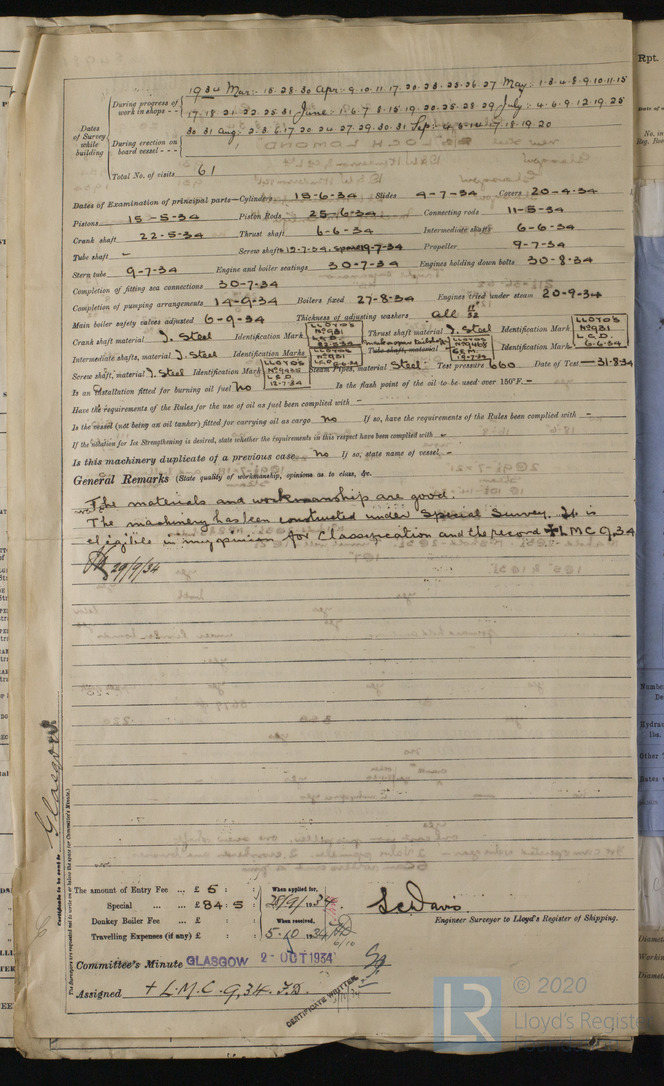 1934 Mar:- 15.28.30 Apr:- 9.10.11.17.20.23.25.26.27 May:- 1.3.4.8.9.10.11.15
During progress of work in shops - -
17.18.21.22.25.31 June:- 1.6.7.8.15.19.20.25.28.29 July:- 4.6.9.12.19.25
Dates of Survey while building
30.31 Aug:- 2.3.6.17.20.24.27.29.30.31 Sep:- 4.5.14.17.18.19.20
During erection on board vessel - - -
Total No. of visits 61
Dates of Examination of principal parts—Cylinders 15-6-34 Slides 4-7-34 Covers 20-4-34
Pistons 15-5-34 Piston Rods 25-6-34 Connecting rods 11-5-34
Crank shaft 22-5-34 Thrust shaft 6-6-34 Intermediate shafts 6-6-34
Tube shaft - Screw shafts 12-7-34. spare 9-7-34 Propeller 9-7-34
Stern tube 9-7-34 Engine and boiler seatings 30-7-34 Engines holding down bolts 30-8-34
Completion of fitting sea connections 30-7-34
Completion of pumping arrangements 14-9-34 Boilers fixed 27-8-34 Engines tried under steam 20-9-34
Main boiler safety valves adjusted 6-9-34 Thickness of adjusting washers all 11/32"
Crank shaft material I. Steel Identification Mark LLOYDS No 931 L.C.D. 22-5-34 Thrust shaft material I. Steel Identification Mark LLOYDS No 931 L.C.D. 6-6-34
Intermediate shafts, material I. Steel Identification Marks LLOYDS No 931 Tube shaft, material Identification Mark
Screw shaft, material I. Steel Identification Mark LLOYDS 12-7-34 Steam Pipes, material Steel Test pressure 660 Date of Test 31-8-34
Is an installation fitted for burning oil fuel No Is the flash point of the oil to be used over 150°F. -
Have the requirements of the Rules for the use of oil as fuel been complied with -
Is the vessel (not being an oil tanker) fitted for carrying oil as cargo No If so, have the requirements of the Rules been complied with -
If the notation for Ice Strengthening is desired, state whether the requirements in this respect have been complied with -
Is this machinery duplicate of a previous case No If so, state name of vessel -
General Remarks (State quality of workmanship, opinions as to class, &c.
The materials and workmanship are good.
The machinery has been constructed under Special Survey. It is
eligible in my opinion for Classification and the record +LMC 9,34
29/9/34
Glasgow
Certificate to be sent to
(The Surveyors are requested not to write on or below the space for Committee's Minute.)
The amount of Entry Fee ... £ 5 : : When applied for,
Special ... ... £ 84 : 5 : 28/9/1934
Donkey Boiler Fee ... £ : : When received,
Travelling Expenses (if any) £ : : 5-10 1934
L C Davis
Engineer Surveyor to Lloyd's Register of Shipping.
Committee's Minute GLASGOW 2 - OCT 1934
Assigned + L.M.C. 9,34. F.D.
CERTIFICATE WRITTEN
© 2020
LR Lloyd's Register
Foundation
Rpt.